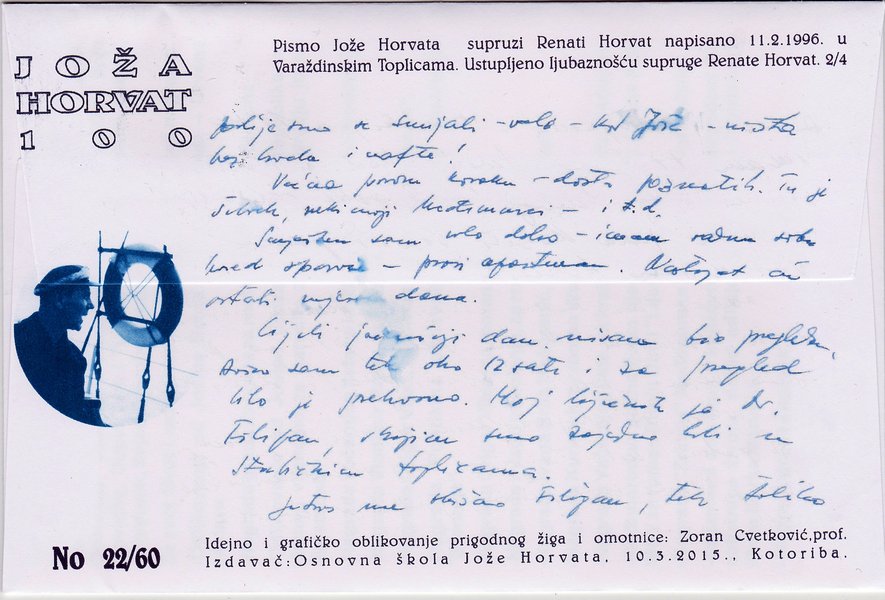 JOŽA
HORVAT
100
Pismo Jože Horvata supruzi Renati Horvat napisano 11.2.1996. u
Varaždinskim Toplicama. Ustupljeno ljubaznošću supruge Renate Horvat. 2/4
smo se smijali - - kod Jože - nište
bez i nafte!
- dosta poznatih. Tu je
neki moji Međimurci - i t.d.
Smješten sam vrlo dobro - imam radnu sobu
pored spavaće - pravi apartman.
ostati dana.
Cijeli dan nisam bio pregledan,
sam tek oko 12 sati i za pregled
bilo je prekasno. Moj liječnik je Dr.
Filipan, s kojim smo zajedno bili u
Stubičkim toplicama.
Jutros me Filipan, tek toliko
No 22/60
Idejno i grafičko oblikovanje prigodnog žiga i omotnice: Zoran Cvetković,prof.
Izdavač:Osnovna škola Jože Horvata, 10.3.2015., Kotoriba.